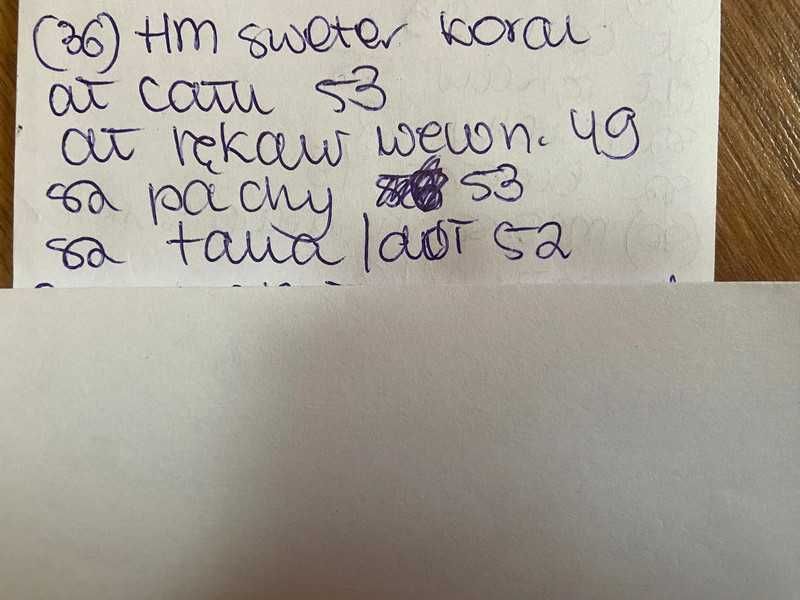 (36) HM sweter koral
dł całk 53
dł rękaw wewn. 49
sz pachy 53
sz talia / dół 52